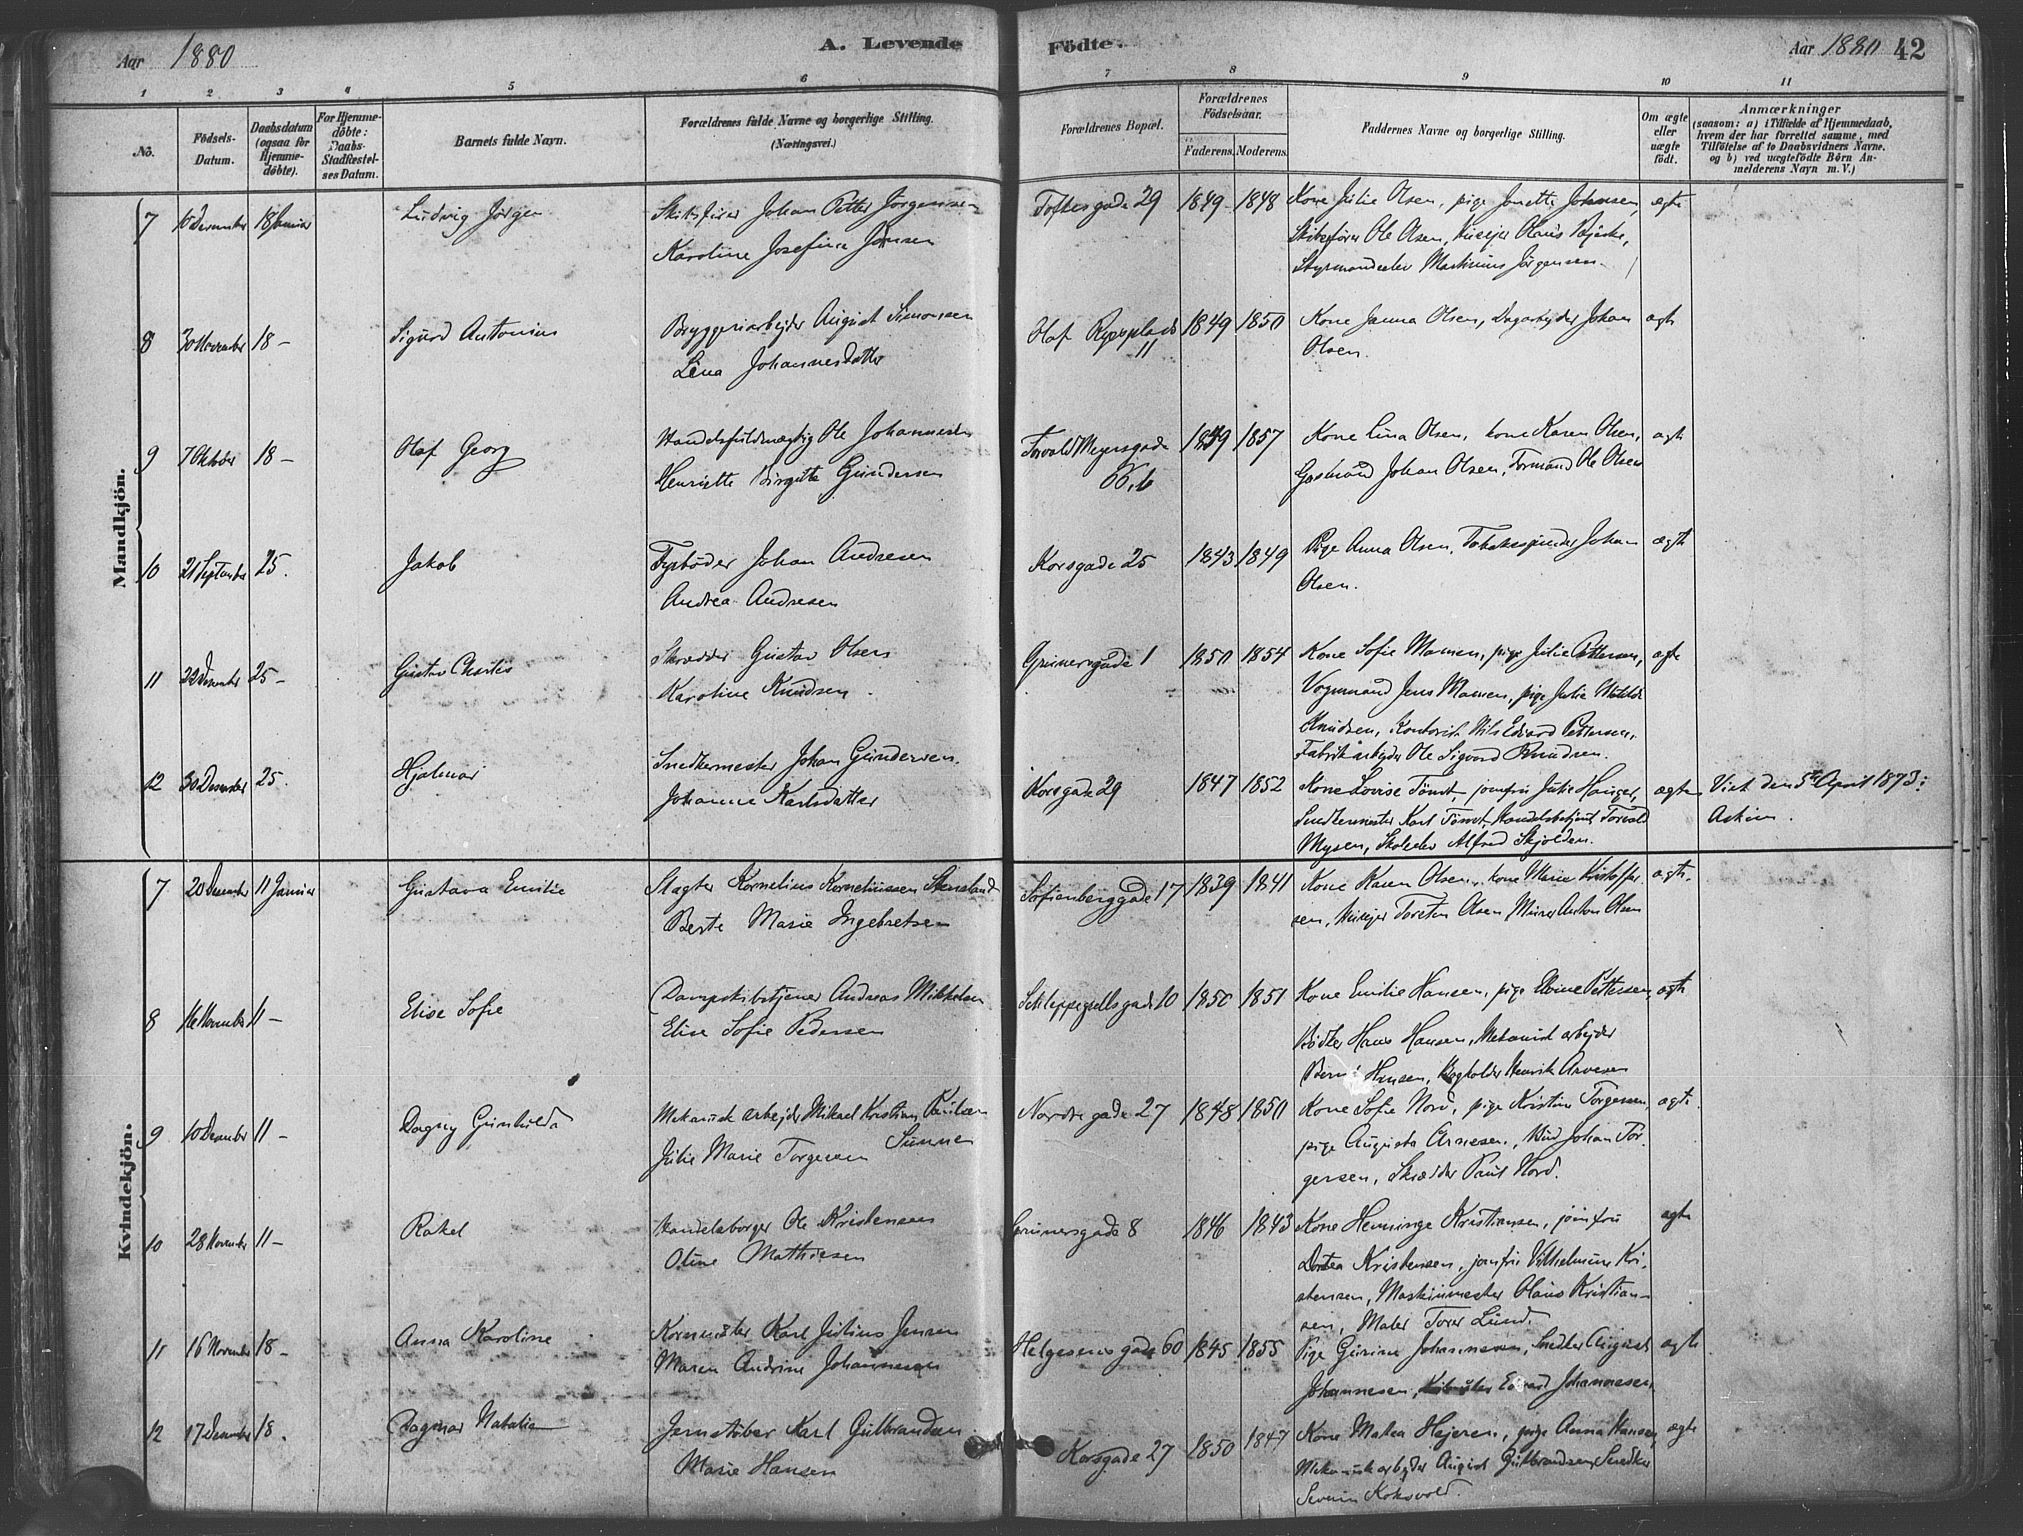 Aar 1880
A. Levende
Födte.
Aar 1880 42
1 2 3 4 5 6 7 8 9 10 11
No.
Födsels-
Datum.
Daabsdatum
(ogsaa for
Hjemme-
döbte).
For Hjemme-
döbte:
Daabs-
Stadfæstel-
ses Datum.
Barnets fulde Navn.
Forældrenes fulde Navne og borgerlige Stilling.
(Næringsvei.)
Forældrenes Bopæl.
Forældrenes
Födselsaar.
Faderens. Moderens.
Faddernes Navne og borgerlige Stilling.
Om ægte
eller
uægte
födt.
Anmærkninger
(saasom: a) i Tilfælde af Hjemmedaab,
hvem der har forrettet samme, med
Tilföielse af to Daabsvidners Navne.
og b) ved uægtefödte Börn An-
melderens Navn m. V.)
Mandkjön.
7 10 Desember 18 Januar Ludvig Jørgen Skibsfører Johan Petter Jørgensen Toftesgade 29 1849 1848 Kone Julie Olsen, pige Jonette Johansen, ægte
Karoline Josefine Jonsen Skibsfører Ole Olsen, Husejer Olaus
Styrmandselev Martinius Jørgensen.
8 30 November 18 – Sigurd Antonius Bryggeriarbejder August Simonsen Olaf Ryesplads 1849 1850 Kone Janna Olsen, Dagarbejder Johan ægte
11
Lina Johannesdatter Olsen.
9 7 Oktober 18 – Olaf Georg Handelsfuldmægtig Ole Johannesen Torvald Meyersgade 1849 1857 Kone Lina Olsen, kone Karen Olsen, ægte
66, b
Henriette Birgitte Gundersen Gasmand Johan Olsen, Formand Ole Olsen
10 21 September 25. Jakob Fyrbøder Johan Andresen Korsgade 25 1843 1849 Pige Anna Olsen, Tobakspinder Johan ægte
Andrea Andresen Olsen.
11 22 Desember 25 – Gustav Charles Skrædder Gustav Olsen Grünersgade 1 1850 1854 Kone Sofie Mamen, pige Julie Pettersen, ægte
Karoline Knudsen. Vognmand Jens Mamen, pige Julie Matilde
Knudsen, Kontorist Nils Edvard Pettersen,
Fabrikarbejder Ole Sigvard Knudsen.
12 30 Desember 25. Hjalmar Snedkermester Johan Gundersen. Korsgade 29 1847 1852 Kone Lovise Tömt, jomfru Julie Hauger, ægte Viet den 5te April 1873 i
Johanne Karlsdatter Snedkermester Karl Tömt, Handelsbetjent Torvald Askim.
Mysen, Skoleelev Alfred Skjolden.
Kvindekjön.
7 20 Desember 11 Januar Gustava Emilie Slagter Kornelius Korneliussen Stensland Sofienberggade 17 1839 1841 Kone Karen Olsen, kone Marie Kristoffer- ægte.
Berte Marie Ingebretsen sen, Husejer Torsten Olsen, Murer Anton Olsen
8 16 November 11 – Elise Sofie Dampskibstjener Andreas Mikkelsen Schleppegrellsgade 10 1850 1851 Kone Emilie Hansen, pige Elvine Pettersen, ægte
Elise Sofie Pedersen Bødker Hans Hansen, Mekanisk arbejder
Hansen, Bogholder Henrik Arvesen
9 10 Desember 11 – Dagny Gunhilda Mekanisk arbejder Mikael Kristian Paulsen Nordregade 27 1848 1850 Kone Sofie Nord, pige Kristine Torgersen, ægte.
Sunne
Julie Marie Torgersen pige Augusta Arnesen, Bud Johan Tor-
gersen, Skrædder Paul Nord.
10 28 November 11 – Rakel Handelsborger Ole Kristensen Grünersgade 8 1846 1843 Kone Henninge Kristiansen, jomfru ægte
Oline Mathiesen Dortea Kristensen, jomfru Vilhelmine Kri-
stensen, Maskinmester Olaus Kristian-
sen, Maler Torer Lund.
11 16 November 18 – Anna Karoline Karl Julius Jensen Helgesensgade 60 1845 1855 Pige Gurine Johannesen, Snedker August ægte
Maren Andrine Johannesen Johannesen, Edvard Johannesen,
12 17 Desember 18. Dagmar Natalie Jernstøber Karl Gulbrandsen Korsgade 27 1850 1847 Kone Matea Hejeren, pige Anna Hansen, ægte
Marie Hansen Mekanisk arbejder August Gulbrandsen, Snedker
Severin Koksvold.